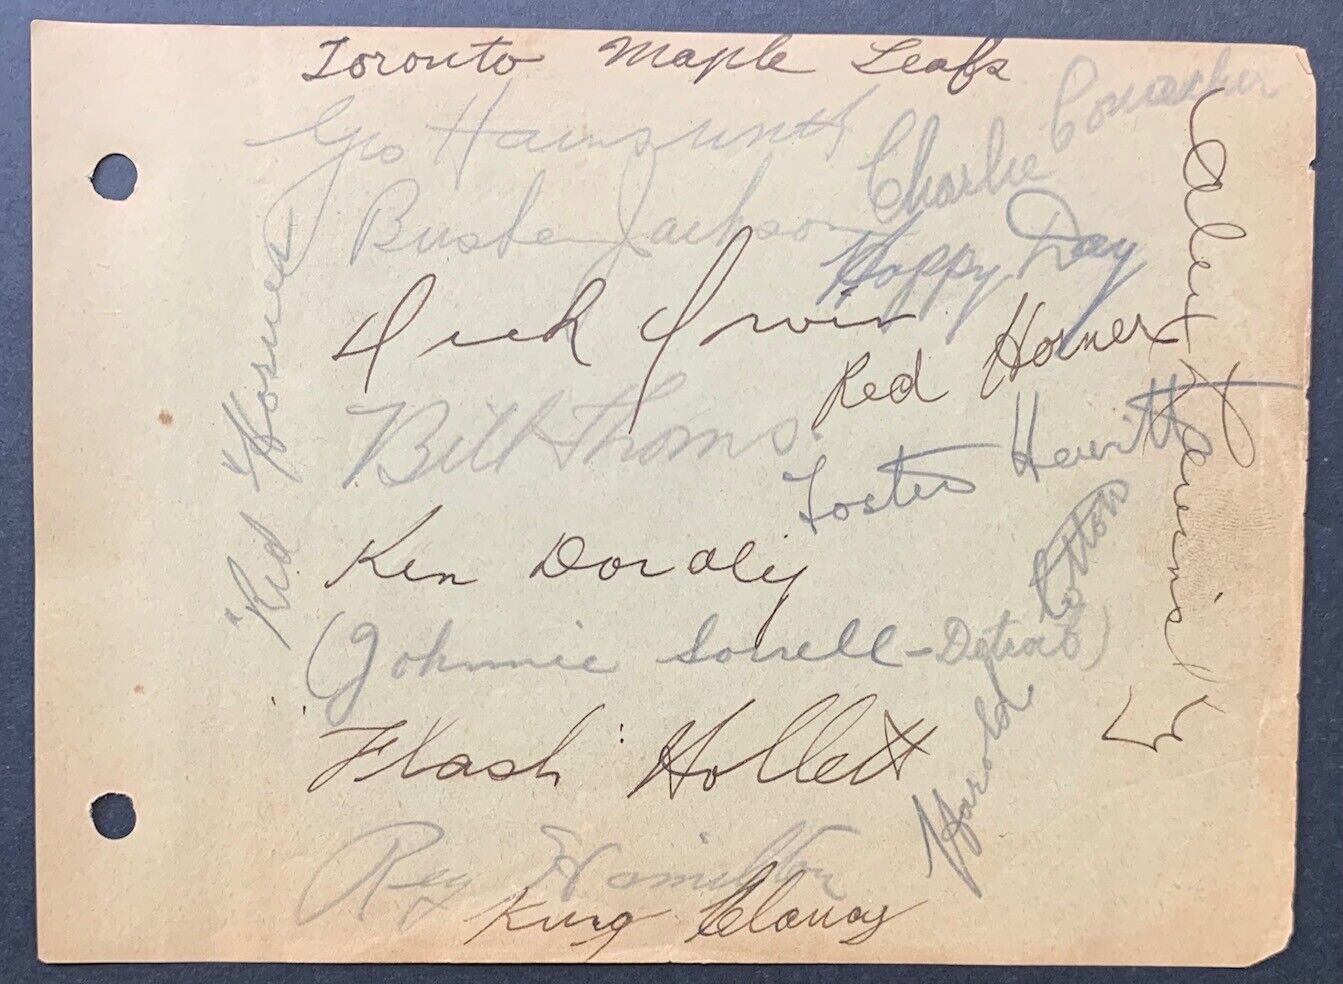 Toronto Maple Leafs
Geo Hainsworth
Charlie Conacher
Busher Jackson
Happy Day
Alex Levinsky
Dick Irvin
Red Horner
"Red"
Bill Thoms.
Foster Hewitt
Ken Doraty
Harold Cotton
(Johnnie Sorrell - Detroit)
"Flash" Hollett
Reg Hamilton
King Clancy